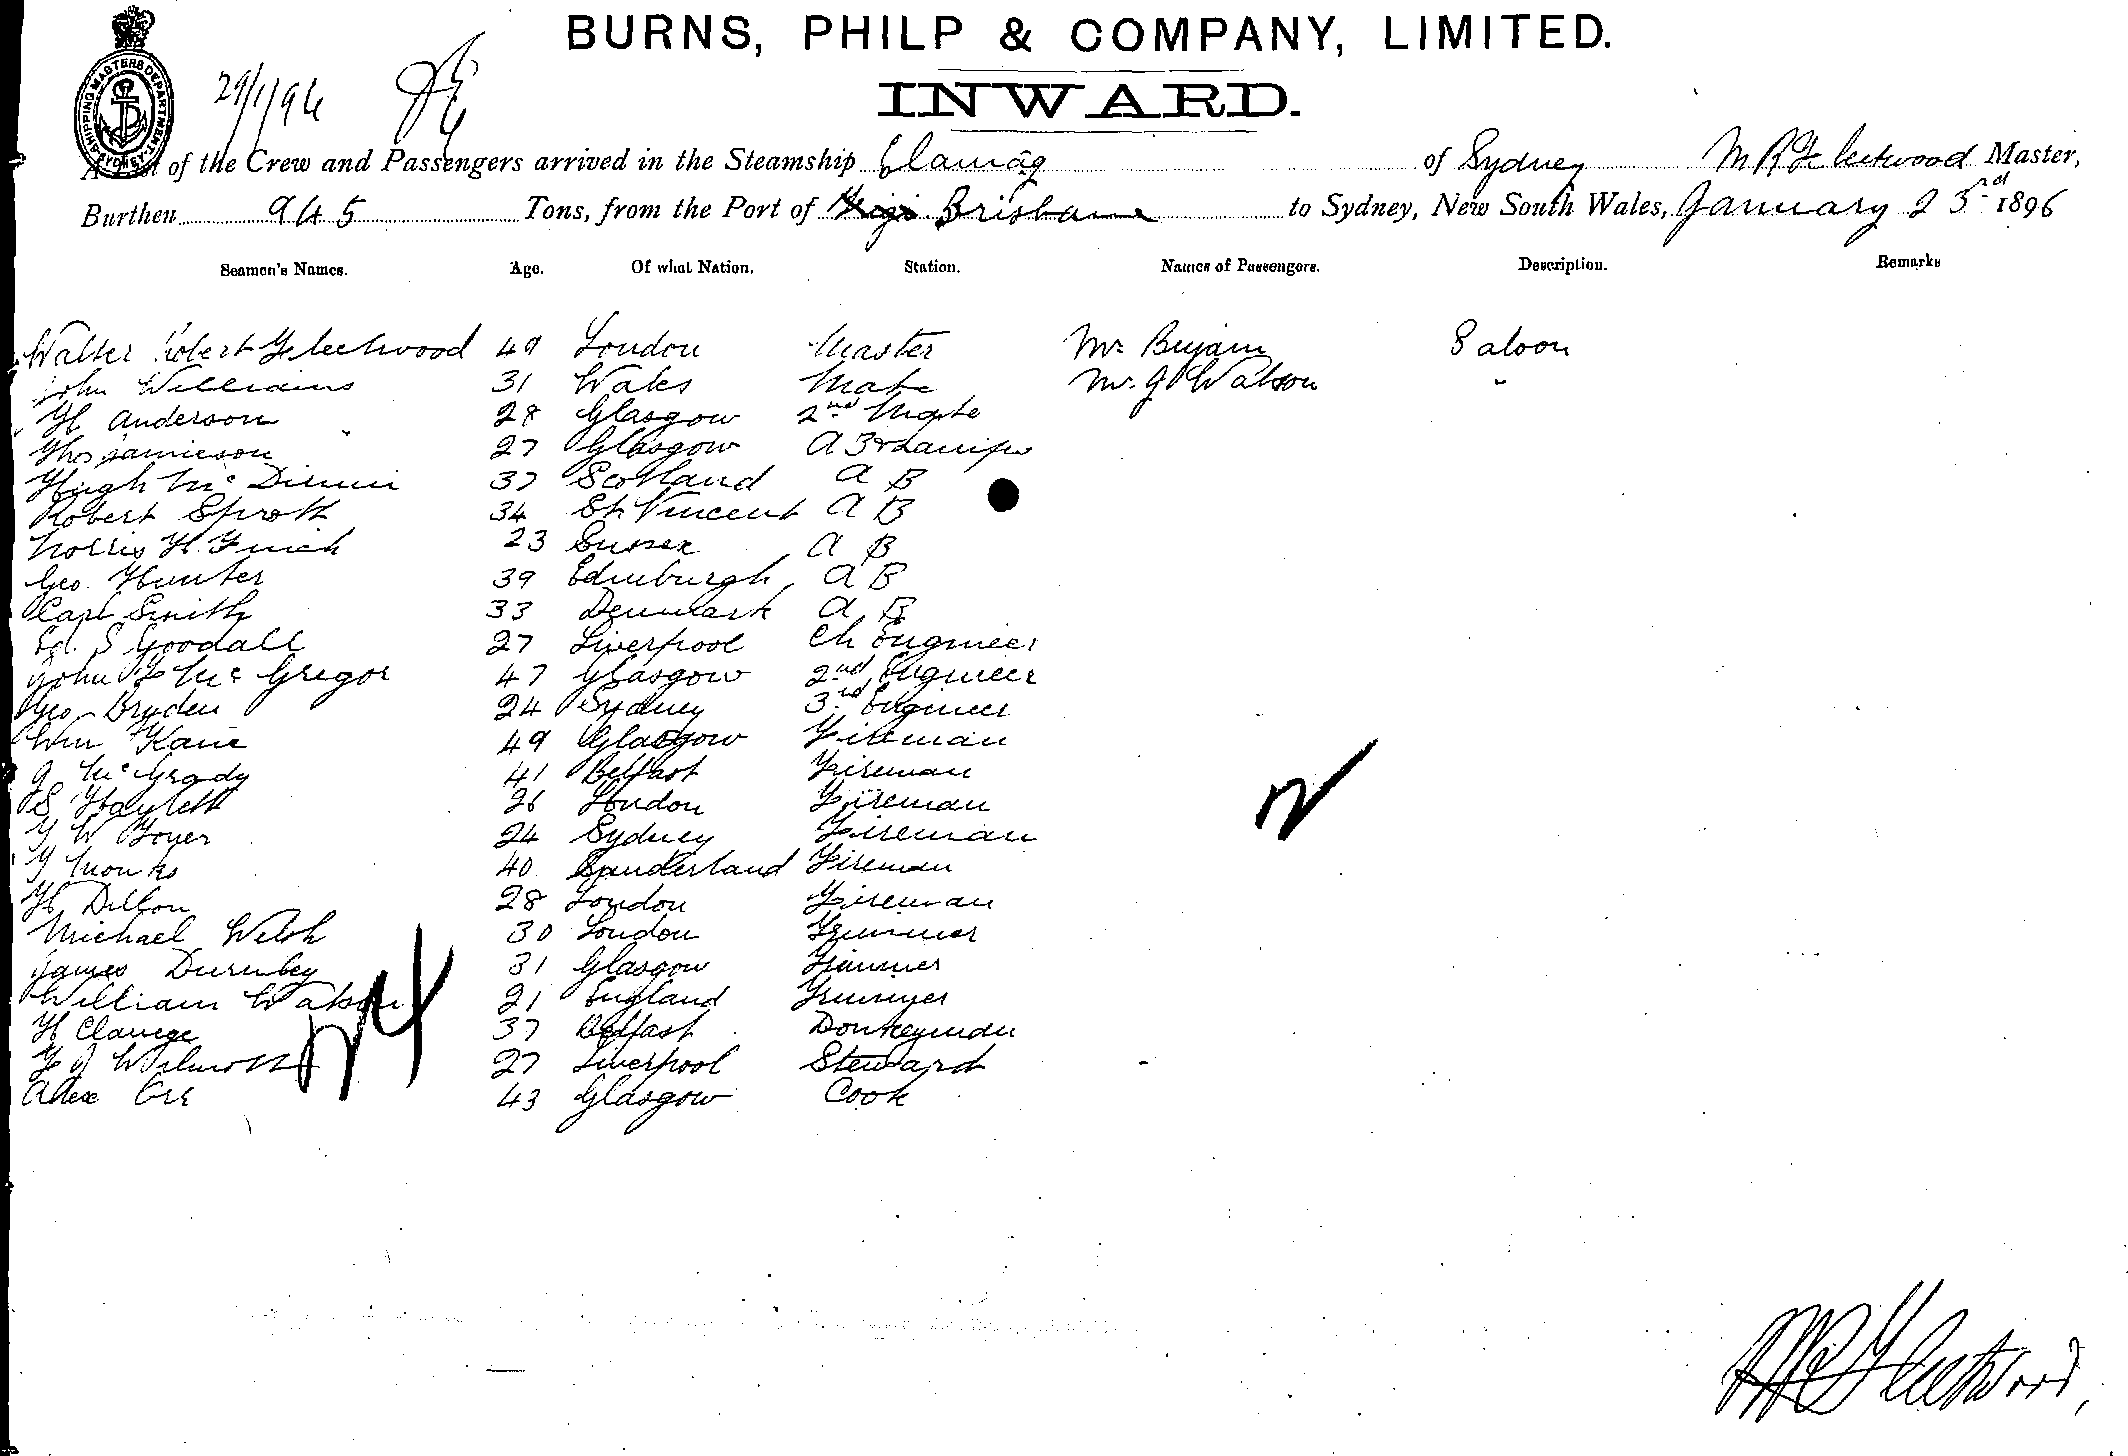 BURNS, PHILP & COMPANY, LIMITED.
INWARD.
29/1/96
SHIPPING MASTERS DEPARTMENT SYDNEY
A List of the Crew and Passengers arrived in the Steamship of Sydney W R Fleetwood Master,
Burthen 945 Tons, from the Port of Brisbane to Sydney, New South Wales, January 1896
Seamen's Names. Age. Of what Nation. Station. Names of Passengers. Description. Remarks
Walter Robert Fleetwood 49 London Master Mr Saloon
John Williams 31 Wales Mate Mr. G Watson "
H Anderson 28 Glasgow 2nd Mate
Thos Jamieson 27 Glasgow A B & Lamps
Hugh Mc 37 Scotland A B
Robert Sprott 34 St. Vincent A B
H. Finch 23 Sussex A B
Geo. Hunter 39 Edinburgh A B
Carl Smith 33 Denmark A B
Ed. S Goodall 27 Liverpool Ch Engineer
John F McGregor 47 Glasgow 2nd Engineer
Geo Bryden 24 Sydney 3rd Engineer
Wm Kane 49 Glasgow Fireman
J McGrady 41 Belfast Fireman
S Haylett 26 London Fireman
F W Foyer 24 Sydney Fireman
T Monks 40 Sunderland Fireman
H Dillon 28 London Fireman
Michael Welsh 30 London Trimmer
James 31 Glasgow Trimmer
William Watson 21 England Trimmer
H 37 Belfast Donkeyman
F J Wilmott 27 Liverpool Steward
Alex Orr 43 Glasgow Cook
24
2
W R Fleetwood